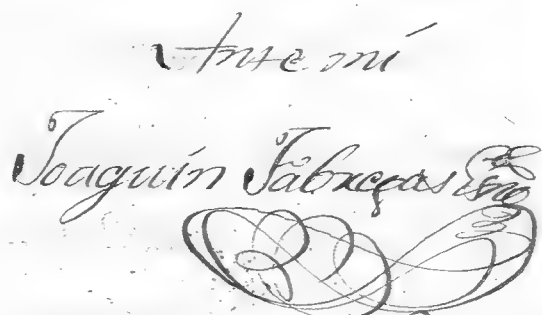 Ante mí
Joaquín Fábregas Esno